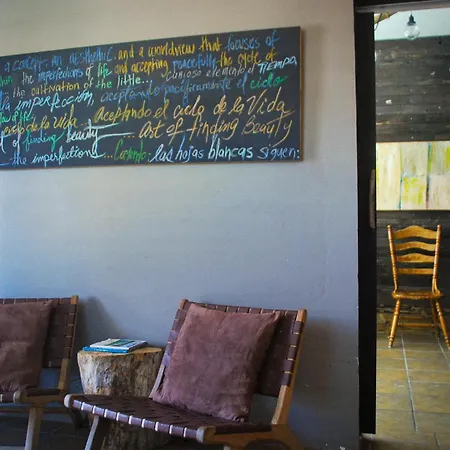 a concept, an aesthetic, and a worldview that focuses of
the imperfections of life and accepting peacefully the cycle of
the cultivation of the little... curioso elemento el TIEMPO
la imperfección, aceptando pacificamente el ciclo
de la Vida Aceptando el ciclo de la Vida
of finding beauty art of finding Beauty
the imperfections... Cociendo: las hojas blancas siguen: